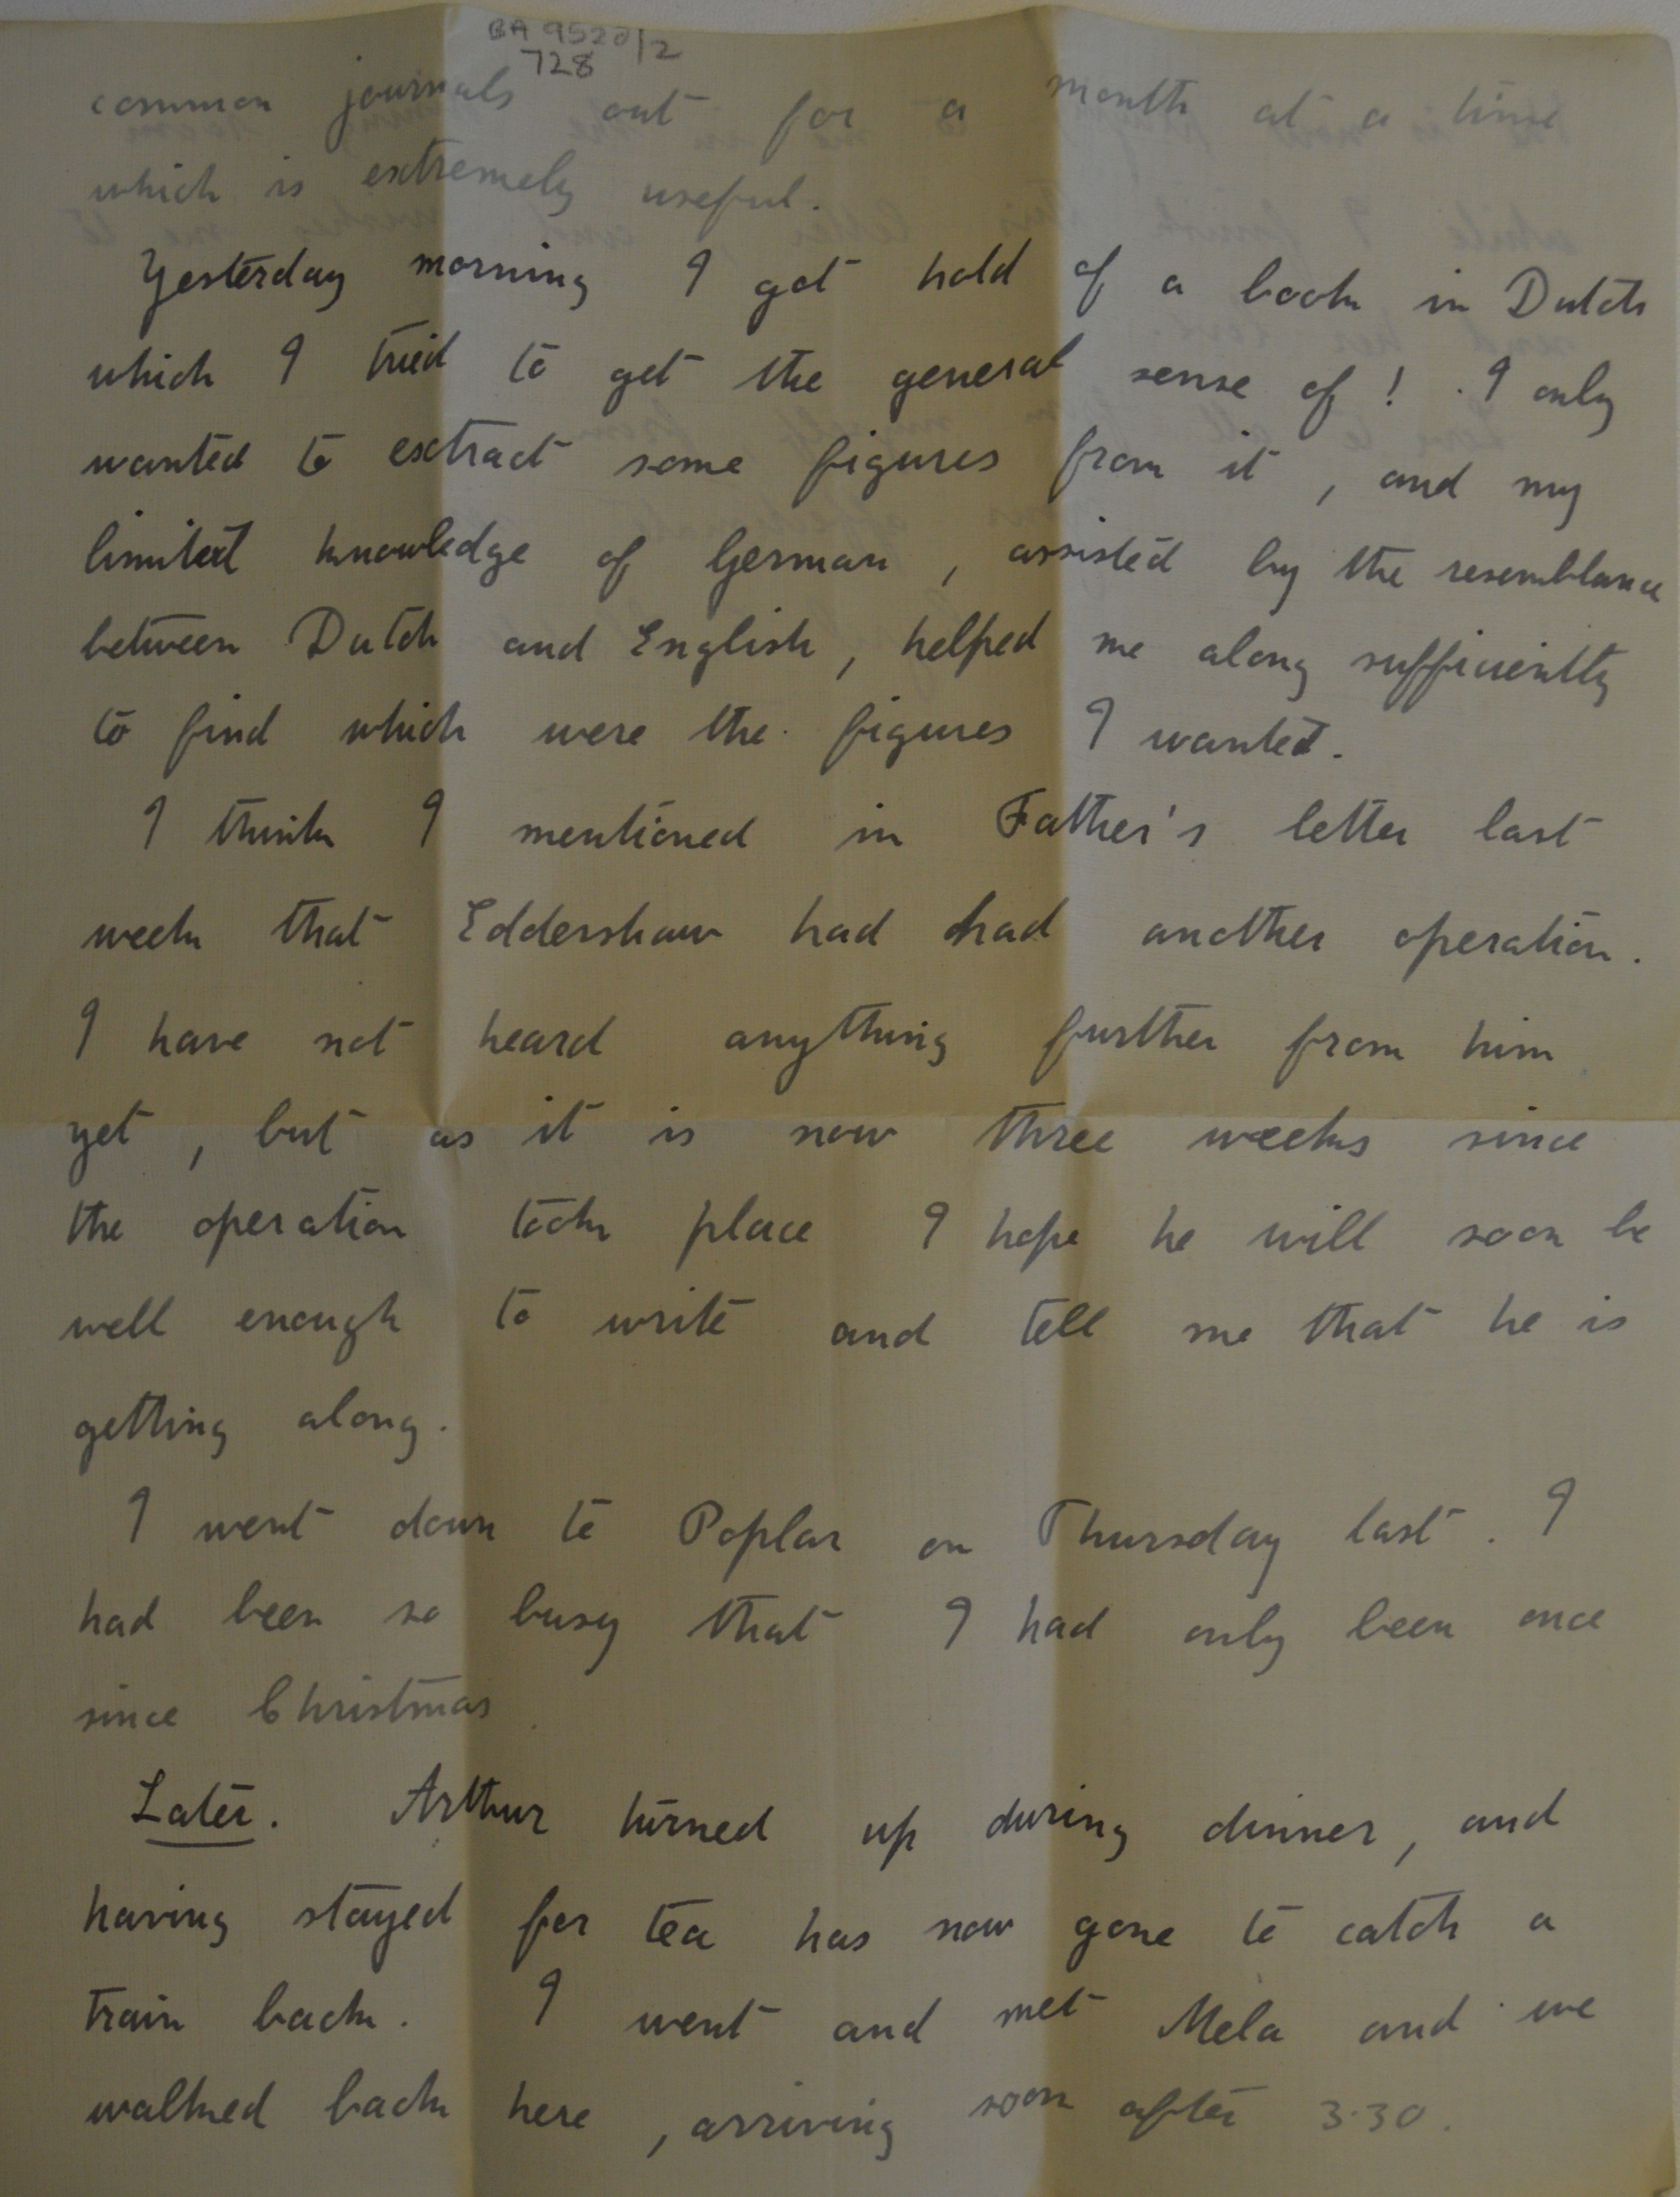 BA 9520/2
728
common journals out for a month at a time
which is extremely useful.
Yesterday morning I got hold of a book in Dutch
which I tried to get the general sense of! . I only
wanted to extract some figures from it, and my
limited knowledge of German, assisted by the resemblance
between Dutch and English, helped me along sufficiently
to find which were the figures I wanted.
I think I mentioned in Father's letter last
week that Eddershaw had had another operation.
I have not heard anything further from him
yet, but as it is now three weeks since
the operation took place I hope he will soon be
well enough to write and tell me that he is
getting along.
I went down to Poplar on Thursday last. I
had been so busy that I had only been once
since Christmas.
Later. Arthur turned up during dinner, and
having stayed for tea has now gone to catch a
train back. I went and met Mela and we
walked back here, arriving soon after 3.30.